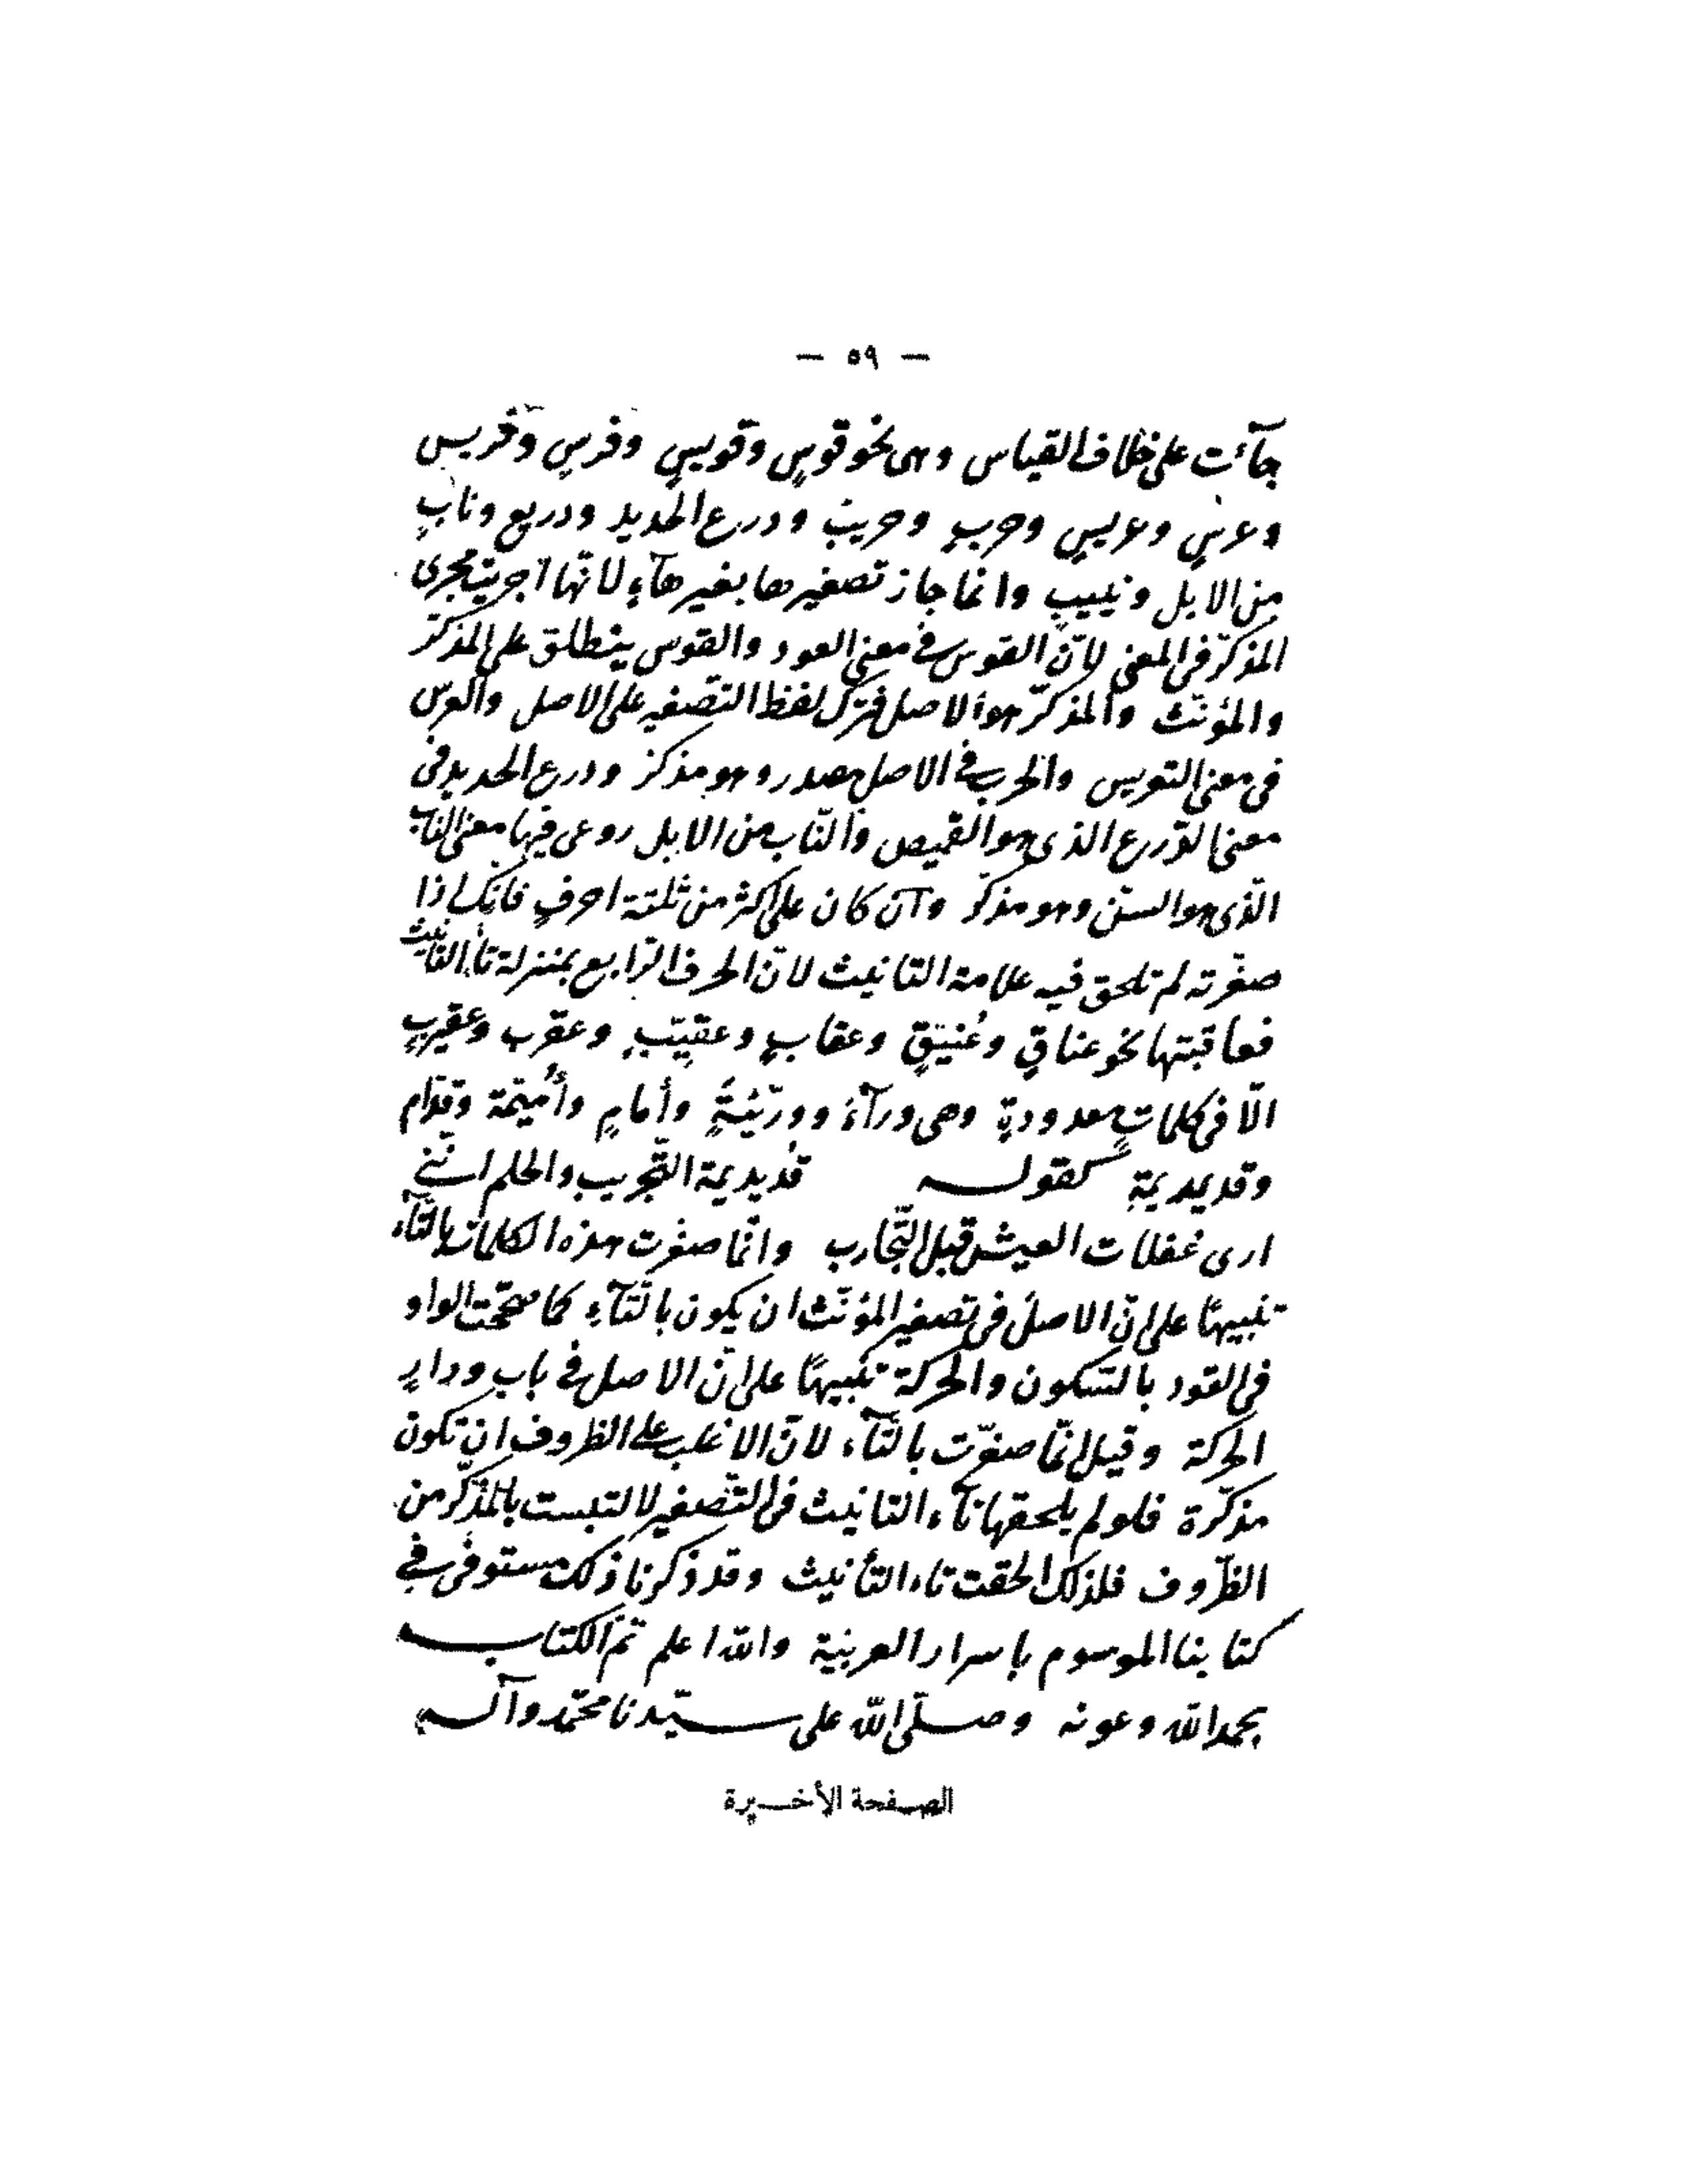 — ٥٩ —
جآئت على خلاف القياس وهى نحو قوسٍ وقويسٍ وفرسٍ وفريس
وعرسٍ وعريسٍ وحربٍ وحريبٍ ودرع الحديد ودريع ونابٍ
من الابل ونييبٍ وانما جاز تصغيرها بغير هآءٍ لانّها اجريت مجرى
المذكّر فى المعنى لانّ القوس فى معنى العود والقوس ينطلق على المذكّر
والمؤنّث والمذكّر هو الاصل فترك لفظ التصغير على الاصل والعرس
فى معنى التعريس والحرب فى الاصل مصدر وهو مذكر ودرع الحديد فى
معنى الدّرع الذى هو القميص والنّاب من الابل روعى فيها معنى الناب
الذّى هو السنّ وهو مذكّر وان كان على اكثر من ثلثة احرفٍ فانّك اذا
صغّرته لم تلحق فيه علامة التانيث لانّ الحرف الرّابع بمنزلة تاء التانيث
فعاقبتها نحو عناقٍ وعُنيّقٍ وعقابٍ وعقيّبٍ وعقرب وعقيربٍ
الّا فى كلماتٍ معدودةٍ وهى ورآءُ ووريّئةٌ وأمامٍ وأُميّمة وقدّام
وقديديمةٍ كقوله قُديديمة التّجريب والحلم انّنى
ارى غفلات العيش قبل التّجارب وانّما صغّرت هذه الكلمات بالتّآء
تنبيهًا على انّ الاصل فى تصغير المؤنّث ان يكون بالتّآءِ كما صحّحت الواو
فى القود بالسّكون والحركة تنبيهًا على انّ الاصل فى باب ودارٍ
الحركة وقيل انّما صغّرت بالتّآء لانّ الاغلب على الظروف ان تكون
مذكّرة فلو لم يلحقها تآء التانيث فى التّصغير لالتبست بالمذكّر من
الظّروف فلذلك الحقت تاء التأنيث وقد ذكرنا ذلك مستوفى فى
كتابنا الموسوم باسرار العربيّة والله اعلم تمّ الكتاب
بحمد الله وعونه وصلّى الله على سيّدنا محمّد وآله
الصفحة الأخيرة